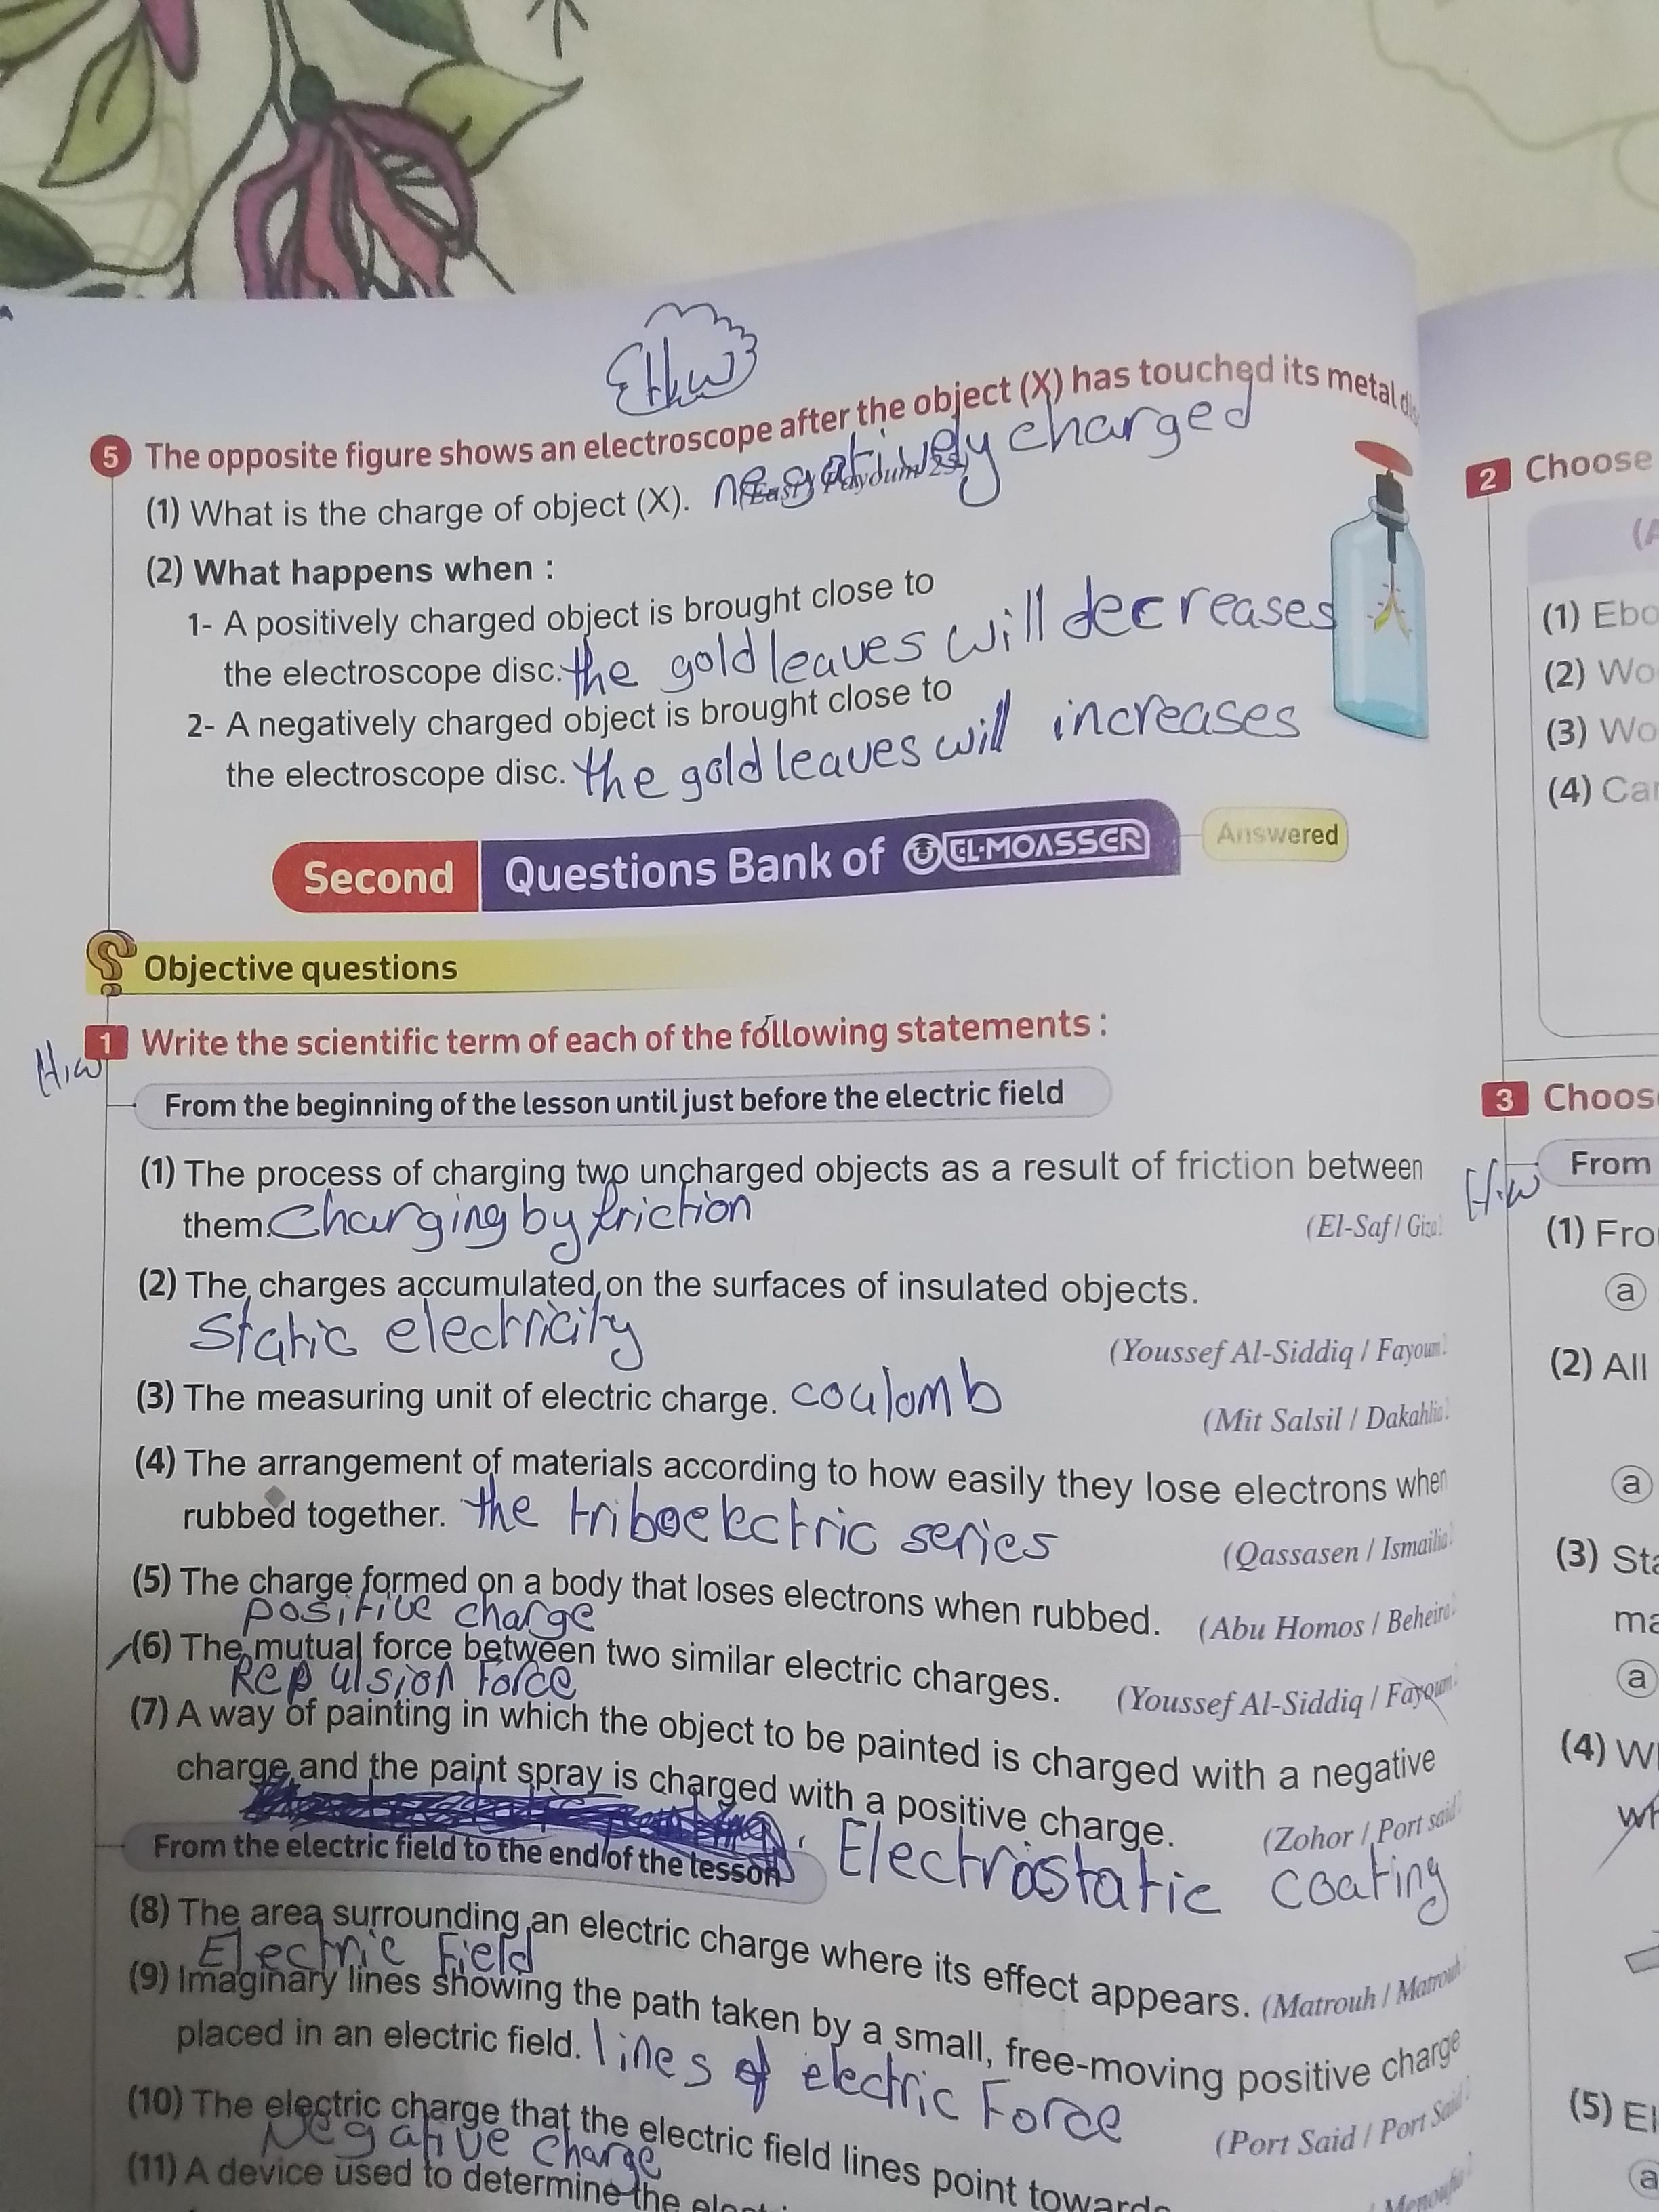 Ethw
5 The opposite figure shows an electroscope after the object (X) has touched its metal
(1) What is the charge of object (X). negatively charged
(2) What happens when :
1- A positively charged object is brought close to
the electroscope disc. the gold leaves will decreases
2- A negatively charged object is brought close to
the electroscope disc. the gold leaves will increases
Second Questions Bank of EL-MOASSER Answered
Objective questions
H.w 1 Write the scientific term of each of the following statements :
From the beginning of the lesson until just before the electric field
(1) The process of charging two uncharged objects as a result of friction between
them. Charging by friction (El-Saf / Giza
(2) The charges accumulated on the surfaces of insulated objects.
Static electricity (Youssef Al-Siddiq / Fayoum
(3) The measuring unit of electric charge. coulomb
(Mit Salsil / Dakahlia
(4) The arrangement of materials according to how easily they lose electrons when
rubbed together. the triboelectric series
(Qassasen / Ismailia
(5) The charge formed on a body that loses electrons when rubbed. (Abu Homos / Beheira
positive charge
(6) The mutual force between two similar electric charges.
Repulsion Force (Youssef Al-Siddiq / Fayoum
(7) A way of painting in which the object to be painted is charged with a negative
charge and the paint spray is charged with a positive charge. (Zohor / Port said
Electrostatic coating
From the electric field to the end of the lesson
(8) The area surrounding an electric charge where its effect appears. (Matrouh / Matrouh
Electric Field
(9) Imaginary lines showing the path taken by a small, free-moving positive charge
placed in an electric field. lines of electric Force
(Port Said / Port Said
(10) The electric charge that the electric field lines point towards
Negative charge
(11) A device used to determine the
2 Choose
(1) Ebo
(2) Wo
(3) Wo
(4) Car
3 Choose
H.w From
(1) Fro
a
(2) All
a
(3) Sta
ma
a
(4) Wh
wh
(5) El
a